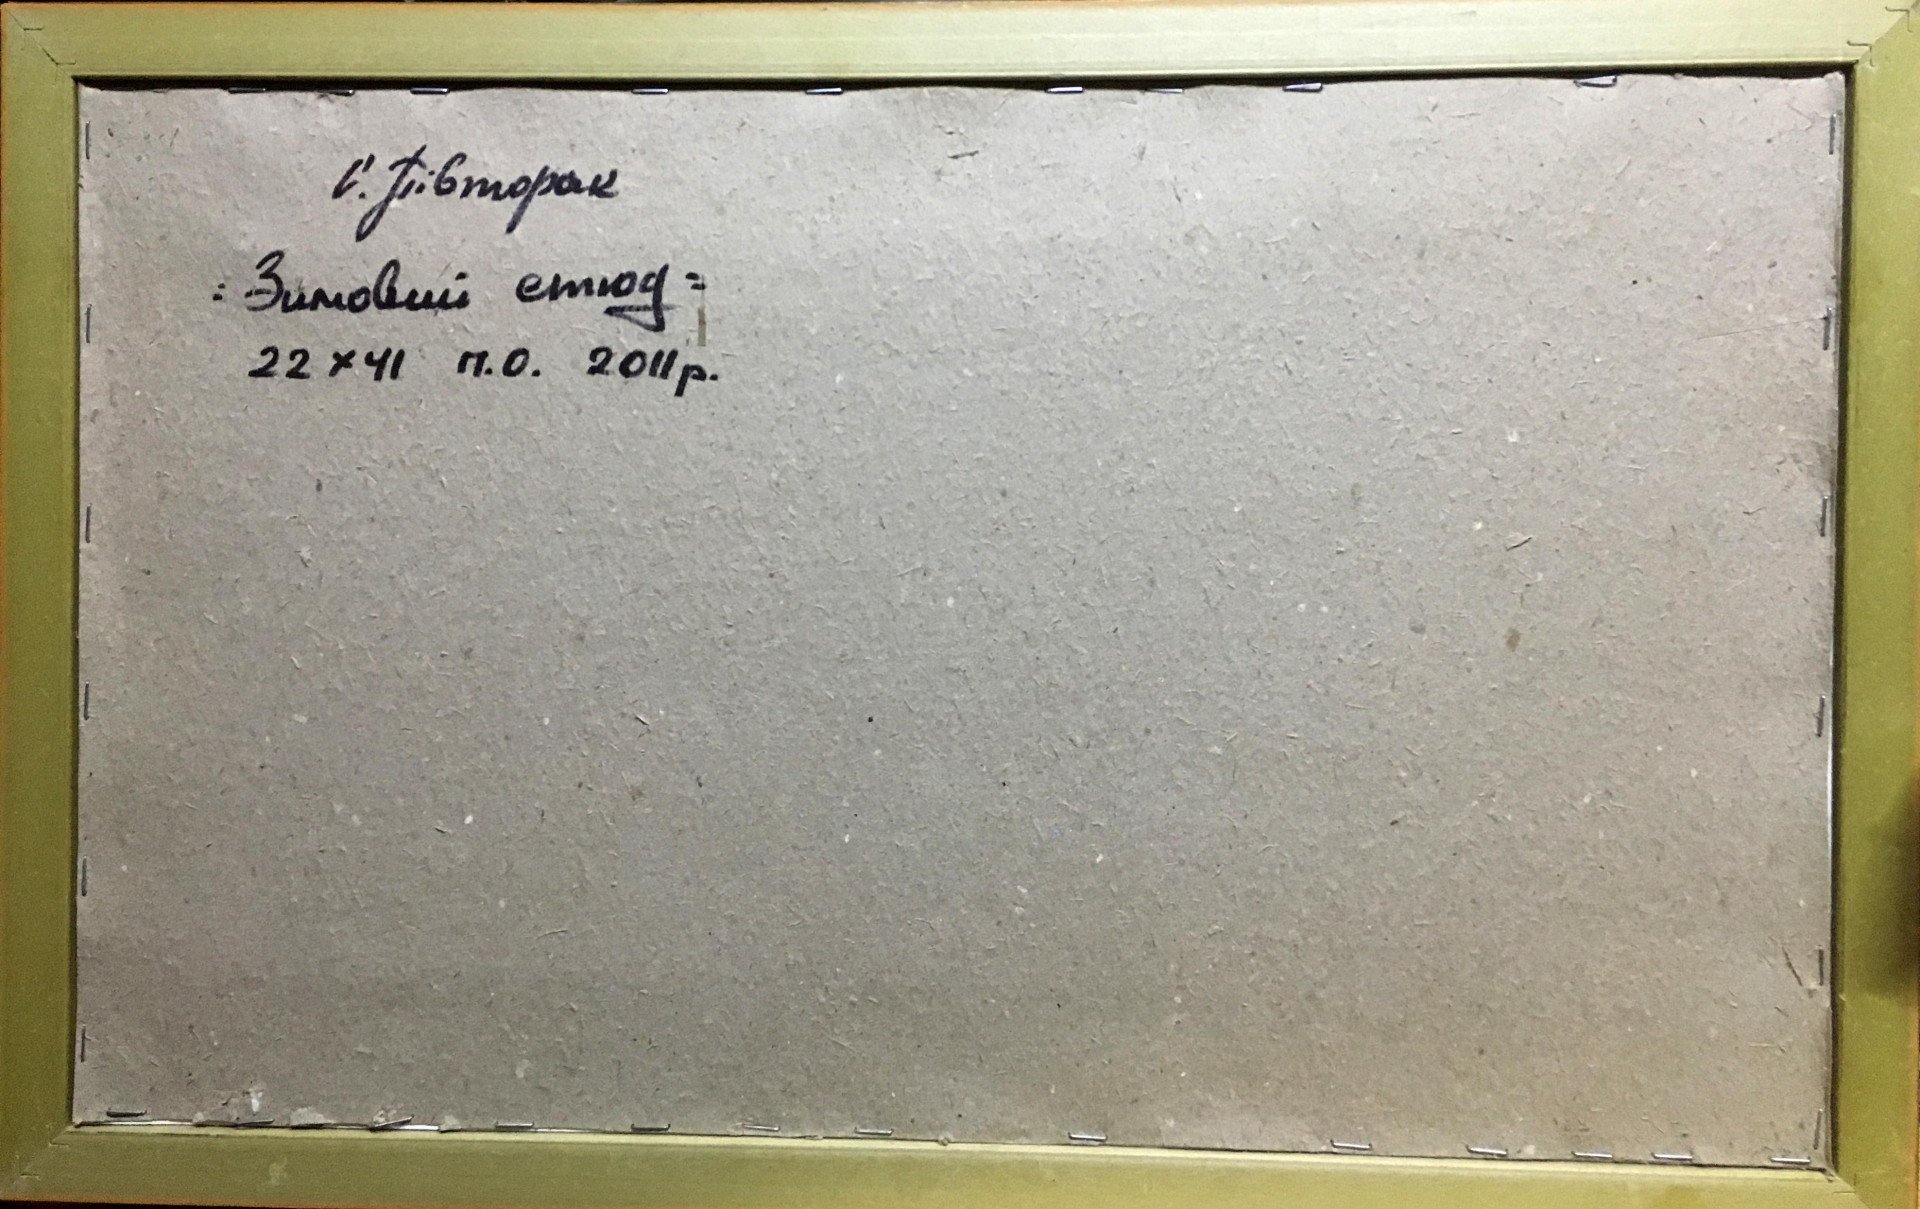 С. Півторак
"Зимовий етюд"
22 х 41 п.о. 2011р.